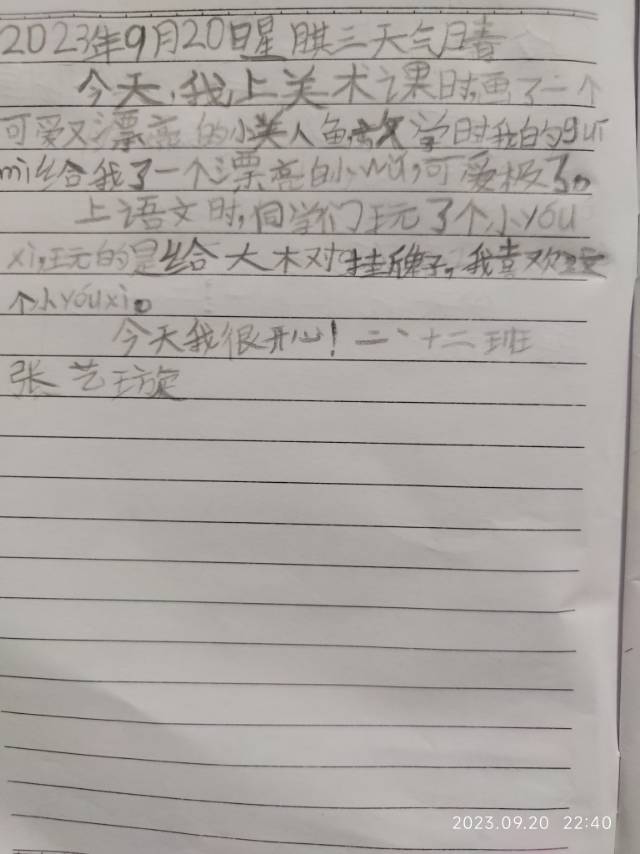 2023年9月20日星期三天气晴
今天,我上美术课时,画了一个
可爱又漂亮的小美人鱼,放学时我的guī
mì给我了一个漂亮的小wū,可爱极了。
上语文时,同学们玩了个小yóu
xì,玩的是给大木对挂牌子。我喜欢这
个小yóuxì。
今天我很开心!二、十二班
张艺璇
2023.09.20 22:40